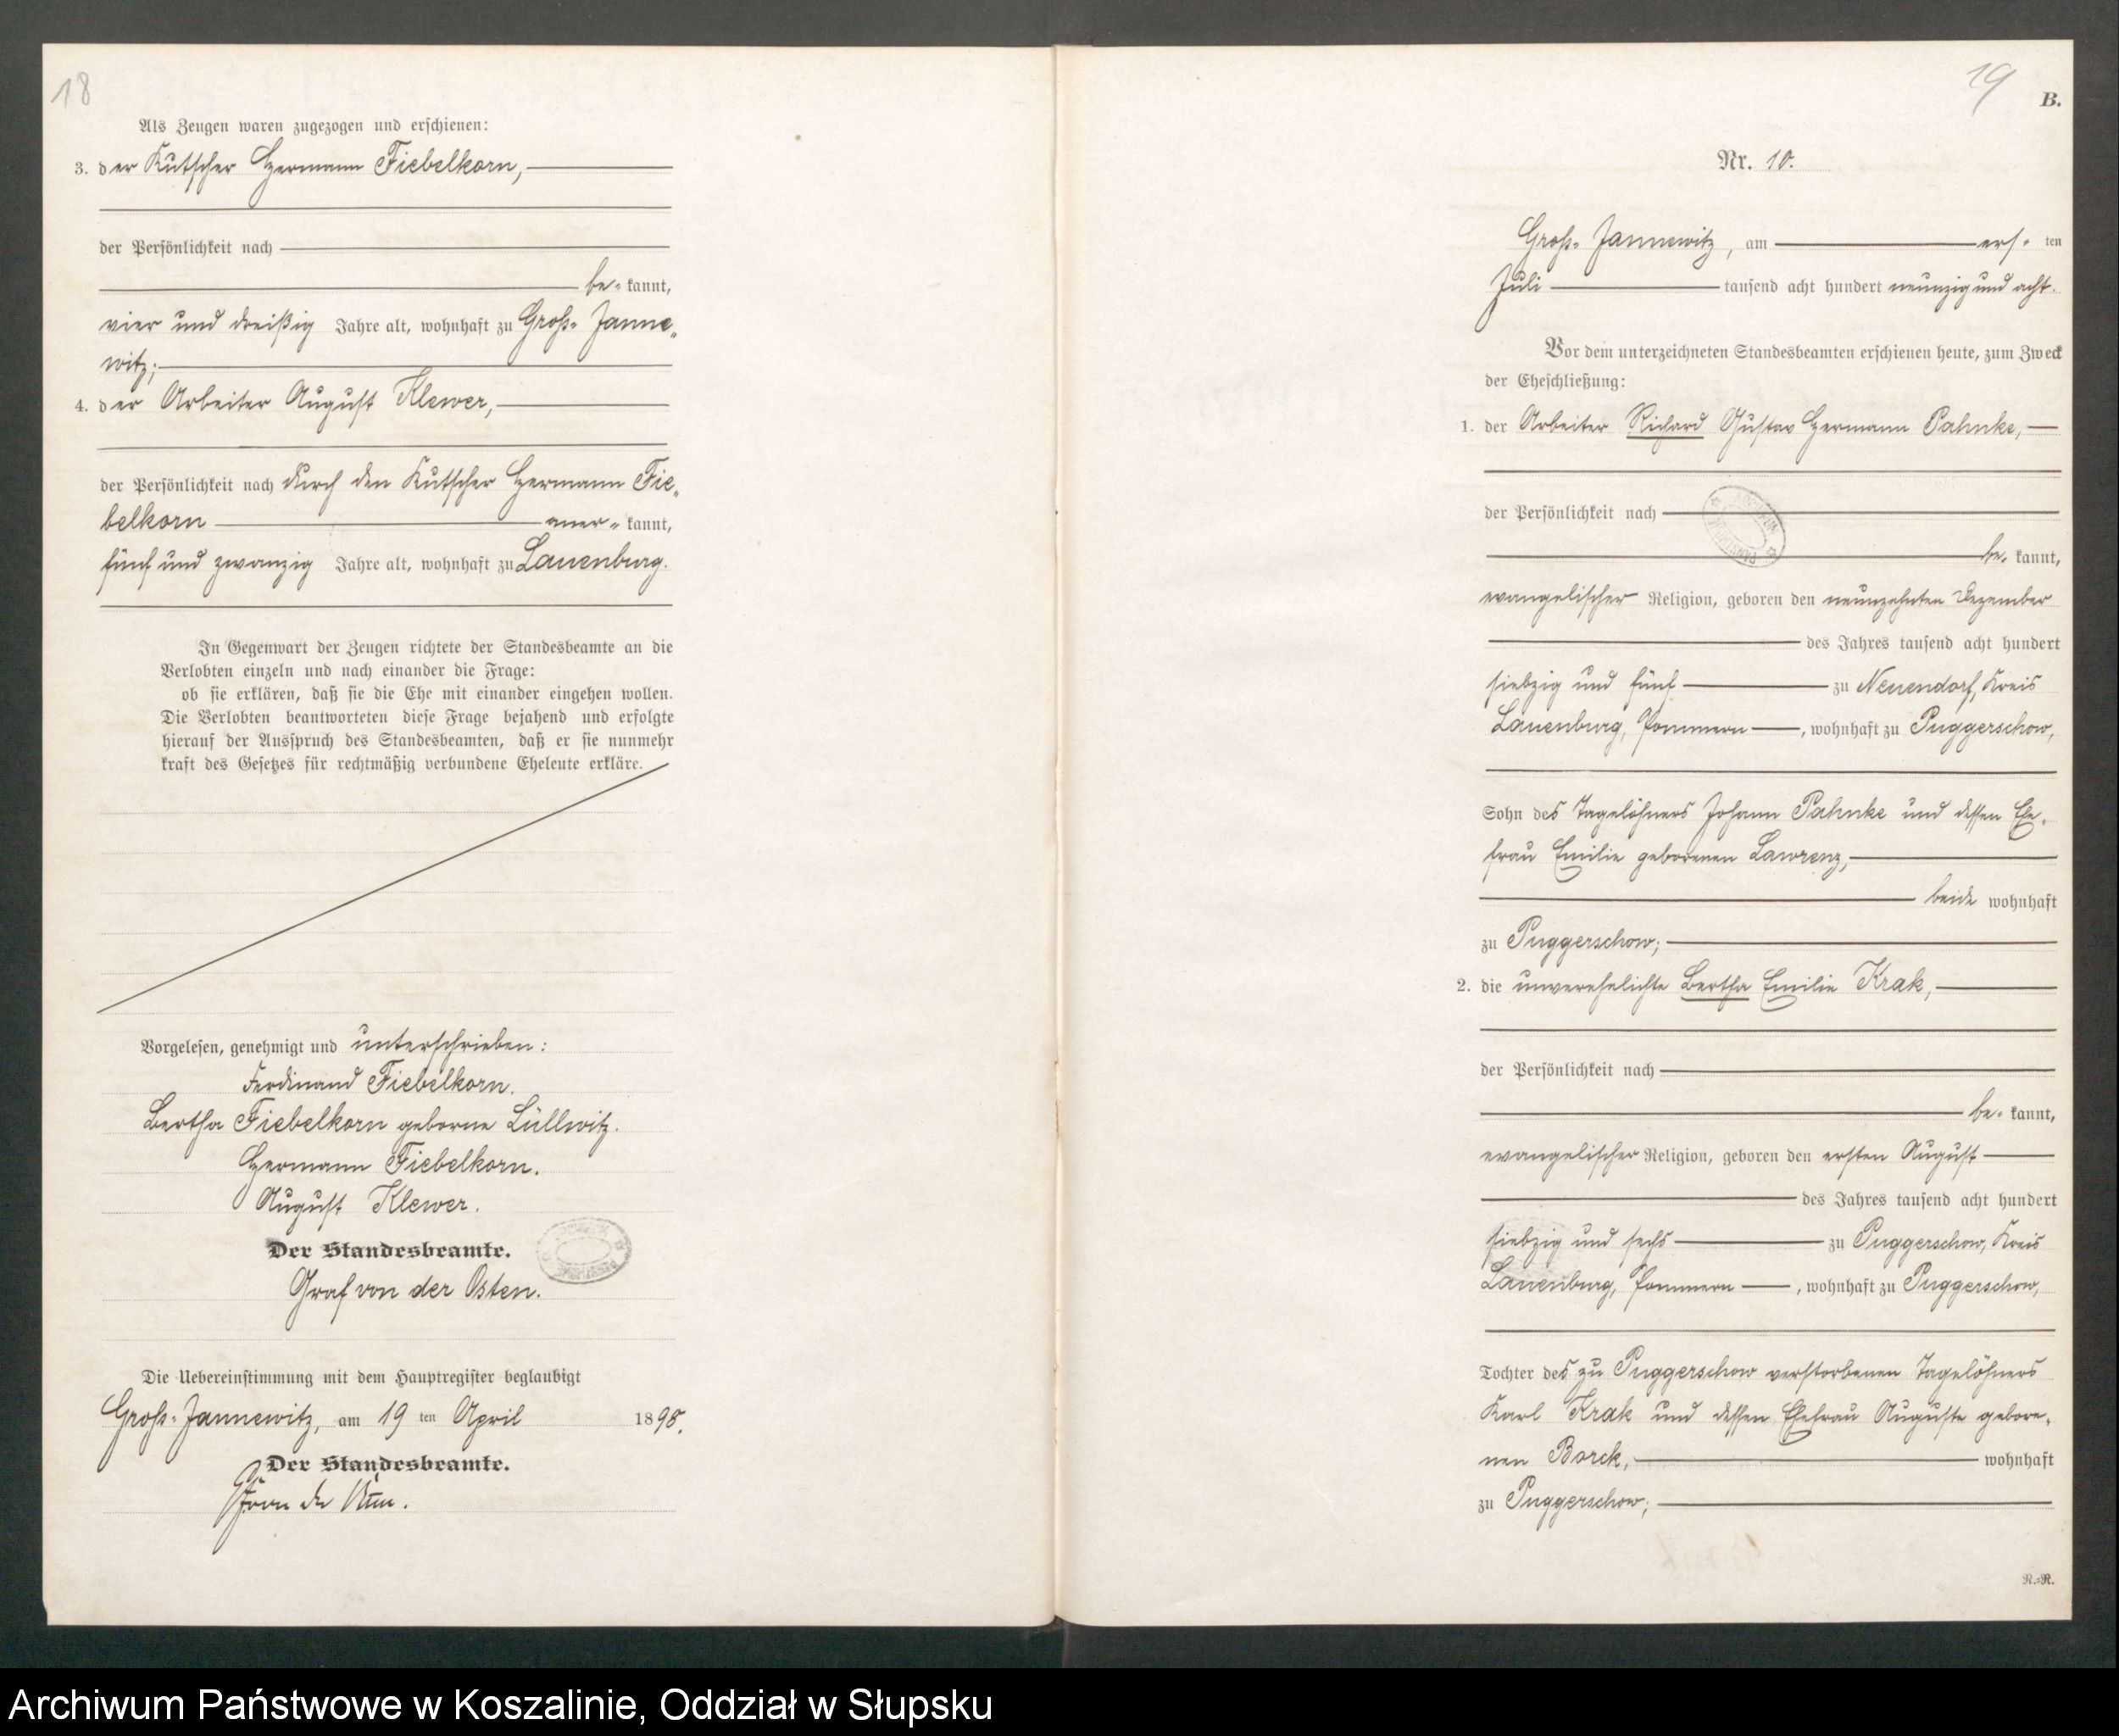 18
Als Zeugen waren zugezogen und erschienen:
3. der Kutscher Hermann Fiebelkorn,
der Persönlichkeit nach
be- kannt,
vier und dreißig Jahre alt, wohnhaft zu Groß- Janne-
witz;
4. der Arbeiter August Klewer,
der Persönlichkeit nach durch den Kutscher Hermann Fie-
belkorn aner- kannt,
fünf und zwanzig Jahre alt, wohnhaft zu Lauenburg.
In Gegenwart der Zeugen richtete der Standesbeamte an die
Verlobten einzeln und nach einander die Frage:
ob sie erklären, daß sie die Ehe mit einander eingehen wollen.
Die Verlobten beantworteten diese Frage bejahend und erfolgte
hierauf der Ausspruch des Standesbeamten, daß er sie nunmehr
kraft des Gesetzes für rechtmäßig verbundene Eheleute erkläre.
Vorgelesen, genehmigt und unterschrieben:
Ferdinand Fiebelkorn.
Bertha Fiebelkorn geborne Lüllwitz.
Hermann Fiebelkorn.
August Klewer.
Der Standesbeamte.
Graf von der Osten.
Die Uebereinstimmung mit dem Hauptregister beglaubigt
Groß-Jannewitz, am 19 ten April 1898.
Der Standesbeamte.
19
B.
Nr. 10.
Groß- Jannewitz, am ers- ten
Juli tausend acht hundert neunzig und acht.
Vor dem unterzeichneten Standesbeamten erschienen heute, zum Zweck
der Eheschließung:
1. der Arbeiter Richard Gustav Hermann Pahnke,
der Persönlichkeit nach
be- kannt,
evangelischer Religion, geboren den neunzehnten Dezember
des Jahres tausend acht hundert
siebzig und fünf zu Neuendorf, Kreis
Lauenburg, Pommern, wohnhaft zu Puggerschow,
Sohn des Tagelöhners Johann Pahnke und dessen Ehe-
frau Emilie geborenen Lawrenz,
beide wohnhaft
zu Puggerschow;
2. die unverehelichte Bertha Emilie Krak,
der Persönlichkeit nach
be- kannt,
evangelischer Religion, geboren den ersten August
des Jahres tausend acht hundert
siebzig und sechs zu Puggerschow, Kreis
Lauenburg, Pommern, wohnhaft zu Puggerschow,
Tochter des zu Puggerschow verstorbenen Tagelöhners
Karl Krak und dessen Ehefrau Auguste gebore-
nen Borck, wohnhaft
zu Puggerschow;
R.-R.
Archiwum Państwowe w Koszalinie, Oddział w Słupsku